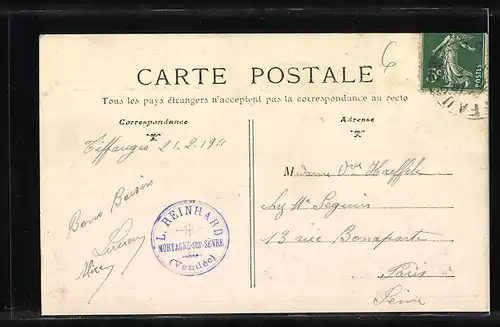 6
CARTE POSTALE
Tous les pays étrangers n'acceptent pas la correspondance au recto
Correspondance
Adresse
5c
POSTES
Tiffauges 21.2.1911
Bons Baisers
L. REINHARD
MORTAGNE-sur-SÈVRE
(Vendée)
Madame Vve Haeffele
chez Mr Seguin
13 rue Bonaparte
Paris
Seine